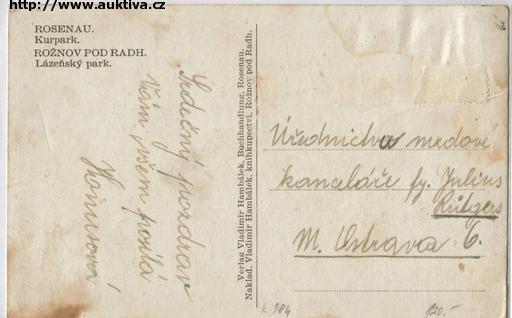 http://www.auktiva.cz
ROSENAU.
Kurpark.
ROŽNOV POD RADH.
Lázeňský park.
Srdečný pozdrav
Vám všem posílá
Verlag Vladimír Hambálek, Buchhandlung, Rosenau.
Naklad. Vladimír Hambálek, knihkupectví, Rožnov pod Radh.
Úřednictvo mzdové
kanceláře fy. Julius
Rütgers
M. Ostrava 6.
k 984
120.-